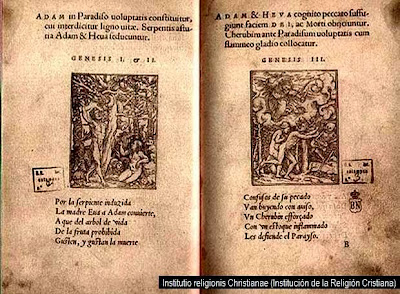 ADAM in Paradiso voluptatis constituitur,
cui interdicitur ligno vitæ. Serpentis astu-
tia Adam & Heva seducuntur.
GENESIS I. & II.
Por la serpiente induzida
La madre Eua a Adam conuierte,
A que del arbol de vida
De la fruta prohibida
Gusten, y gustan la muerte
ADAM & HEVA cognito peccato suffu-
giunt faciem DEI, ac Morti obijciuntur.
Cherubim ante Paradisum voluptatis cum
flammeo gladio collocatur.
GENESIS III.
Confusos de su pecado
Van huyendo con auiso,
Vn Cherubin efforçado
Con vn estoque inflammado
Les defiende el Parayso.
B
BN
Institutio religionis Christianae (Institución de la Religión Cristiana)